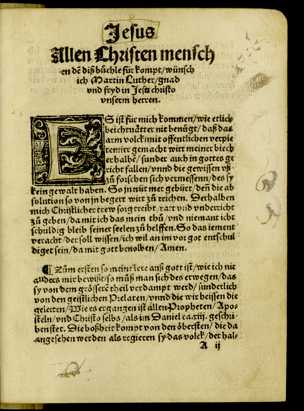 Jesus
Allen Christen mensch
en dē diß büchle für kompt/ wünsch
ich Martin Luther/ gnad
und fryd in Jesu christo
unserm herren.
ES ist für mich kommen/ wie etlich
beichtvätter nit benügt/ daß das
arm volck mit offentlichen
gemacht wirt meiner biech
er halbē/ sunder auch in gottes ge
richt fallen/ unnd die gewissen zů
zů forschen sich vermessenn/ des sy
kein gewalt haben. So in nüt mer gebürt/ deñ die ab
solution so von in begert wirt zů reichen. Derhalben
mich Christlicher trew rat und underricht
zů geben/ da mit ich das mein thů/ und niemant icht
schuldig bleib seiner seelen zů helffen. So das iement
veracht/ der soll wissen/ ich wil an im vor got entschul
diget sein/ da mit gott benolhen/ Amen.
¶ Zům ersten so auß gott ist/ wie ich nit
anders mer bewißt/ so můß man sich des erwegen/ das
sy von den grössern theil verdampt werd/ sunderlich
von den geistlichen Prelaten/ unnd die wir heissen die
gelerten/ Wie es ergangen ist allen Propheten/ Apos
teln/ und Christo selbs/ als im Daniel geschri
ben stet. Die boßheit kompt von den öbersten/ die da
angesehen werden als regieren sy das volck/ det hal⸗
A ij